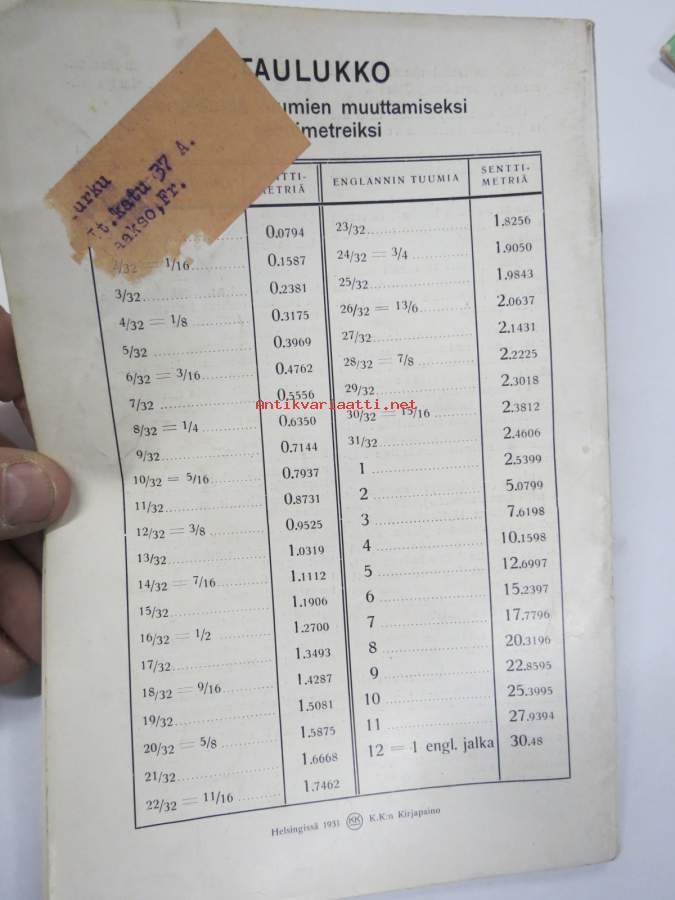 TAULUKKO
muuttamiseksi
urku
katu 37 A.
aakso, Fr.
ENGLANNIN TUUMIA SENTTI-METRIÄ
0.0794
2/32 = 1/16 0.1587
3/32 0.2381
4/32 = 1/8 0.3175
5/32 0.3969
6/32 = 3/16 0.4762
7/32 0.5556
8/32 = 1/4 0.6350
9/32 0.7144
10/32 = 5/16 0.7937
11/32 0.8731
12/32 = 3/8 0.9525
13/32 1.0319
14/32 = 7/16 1.1112
15/32 1.1906
16/32 = 1/2 1.2700
17/32 1.3493
18/32 = 9/16 1.4287
19/32 1.5081
20/32 = 5/8 1.5875
21/32 1.6668
22/32 = 11/16 1.7462
23/32 1.8256
24/32 = 3/4 1.9050
25/32 1.9843
26/32 = 13/6 2.0637
27/32 2.1431
28/32 = 7/8 2.2225
29/32 2.3018
30/32 = 15/16 2.3812
31/32 2.4606
1 2.5399
2 5.0799
3 7.6198
4 10.1598
5 12.6997
6 15.2397
7 17.7796
8 20.3196
9 22.8595
10 25.3995
11 27.9394
12 = 1 engl. jalka 30.48
Antikvariaatti.net
Helsingissä 1931 KK K.K:n Kirjapaino